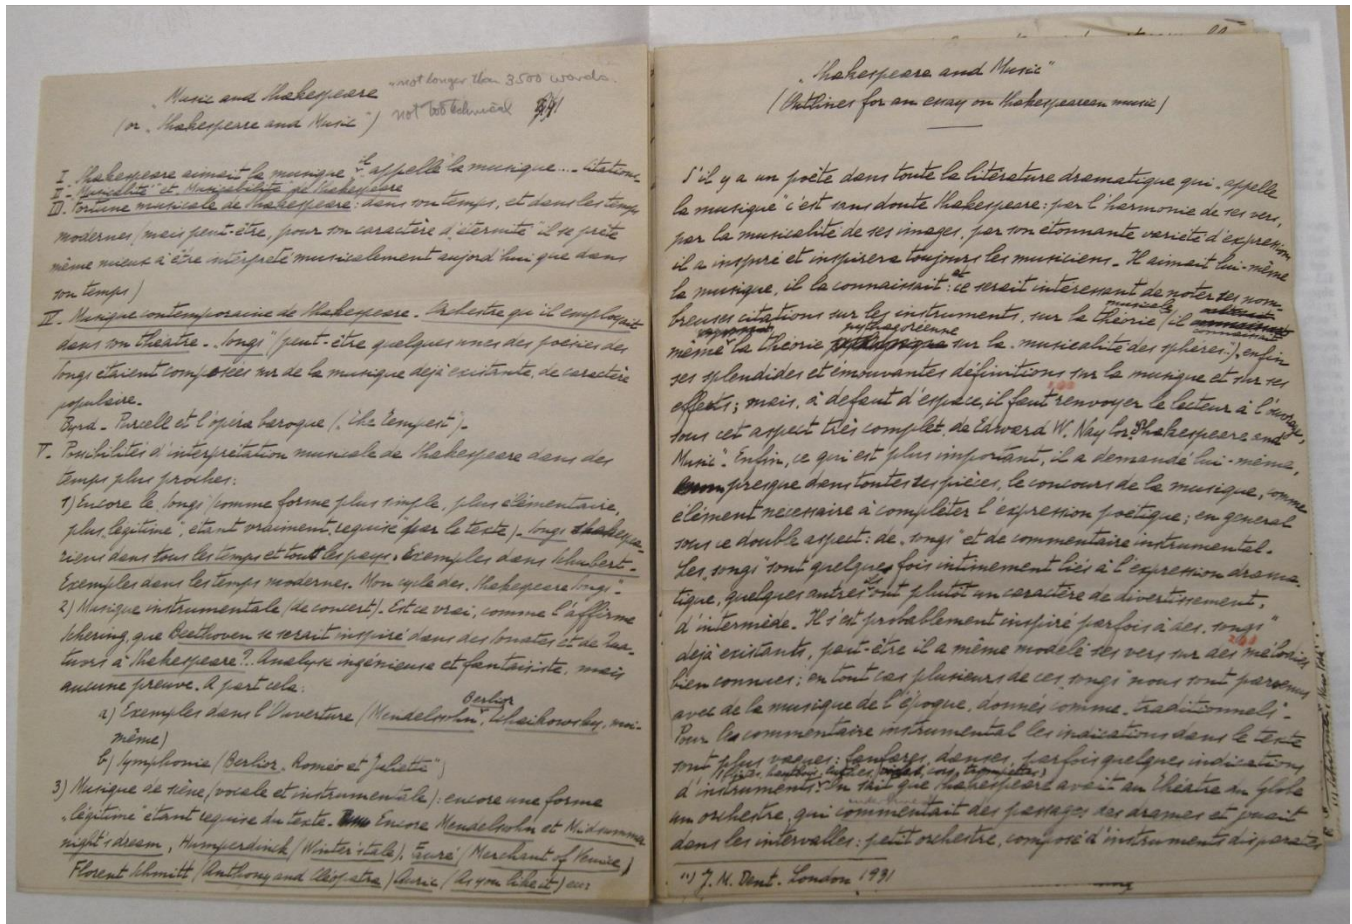 "Music and Shakespeare
"not longer than 3500 words.
(or "Shakespeare and Music")
not too technical
I- Shakespeare aimait la musique - il "appelle la musique"... - Citations-
II- "Musicalité" et "Musicabilité" de Shakespeare
III- Fortune musicale de Shakespeare: dans son temps, et dans les temps
modernes (mais peut-être, pour son caractère d'"éternité" il se prête
même mieux à être interprété musicalement aujord'hui que dans
son temps)
IV- Musique contemporaine de Shakespeare. Orchestre qu'il employait
dans son théatre - "Songs" (peut-être quelques unes des poésies des
songs étaient composées sur de la musique déjà existante, de caractère
populaire.
Byrd - Purcell et l'opéra baroque ("The Tempest")-
V- Possibilités d'interprétation musicale de Shakespeare dans des
temps plus proches:
1) Encore le "song" (comme forme plus simple, plus élémentaire,
plus "légitime", étant vraiment requise par le texte) - Songs shakespea-
riens dans tous les temps et tout les pays. Exemples dans Schubert -
Exemples dans les temps modernes. Mon cycle des "Shakespeare Songs" -
2) Musique instrumentale (de concert). Est-ce vrai, comme l'affirme
Schering, que Beethoven se serait inspiré dans des Sonates et de Qua-
tuors à Shakespeare? Analyse ingénieuse et fantaisiste, mais
aucune preuve. A part cela:
Berlioz
a) Exemples dans l'Ouverture (Mendelssohn, Tchaikowsky, moi-
même)
b) Symphonie (Berlioz "Roméo et Juliette")
3) Musique de scène (vocale et instrumentale): encore une forme
"légitime" étant requise du texte. Encore Mendelsohn et Midsummer
night's dream, Humperdinck (Winter's tale), Fauré (Merchant of Venice)
Florent Schmitt (Anthony and Cleopatre) Auric (As you like it) ecc:
"Shakespeare and Music"
(Outlines for an essay on Shakespearean music)
S'il y a un poète dans toute la littérature dramatique qui "appelle
la musique" c'est sans doute Shakespeare: par l'harmonie de ses vers,
par la musicalité de ses images, par son étonnante varieté d'expression
il a inspiré et inspirera toujours les musiciens - Il aimait lui-même
la musique, il la connaissait: et ce serait intéressant de noter ses nom-
breuses citations sur les instruments, sur la théorie musicale (il
même la théorie pythagoréenne sur la musicalité des sphères!), enfin
ses splendides et émouvantes définitions sur la musique et sur ses
effects; mais, à défaut d'espace, il faut renvoyer le lecteur à l'ouvrage,
sous cet aspect très complet, de Edward W. Naylor "Shakespeare and
Music". Enfin, ce qui est plus important, il a demandé lui-même,
presque dans toutes ses pièces, le concours de la musique, comme
élément necessaire à compléter l'expression poétique; en general
sous ce double aspect: de "songs" et de commentaire instrumental.
Les "songs" sont quelques fois intimement liés à l'expression drama-
tique, quelques autres ont plutôt un caractère de divertissement,
d'intermède. Il s'est probablement inspiré parfois à des "songs"
200
déjà existants, peut-être il a même modelé ses vers sur des mélodies
bien connues; en tout cas plusieurs de ces "songs" nous sont parvenus
avec de la musique de l'époque, donnés comme "traditionnels" -
Pour le commentaire instrumental les indications dans le texte
sont plus vagues: fanfares, danses, parfois quelques indications
d'instruments. On sait que Shakespeare avait au théatre du Globe
un orchestre, qui commentait des passages des drames et jouait
dans les intervalles: petit orchestre, composé d'instruments disparates
(1) J. M. Dent. London 1931